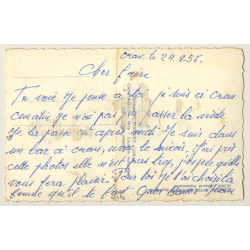 Oran. le 24.9.58.
Cher frère
Tu voie je pense a toi je suis a Oran
ce matin je n'ai pas pu passer la visite
je la passe que après midi. Je suis dans
un bar a oran, avec le J'ai pris
cette photos elle n'est pas j'espère qu'elle
vous fera plaisir. Pour toi je l'ai choisi la
femme qu'il te faut gros